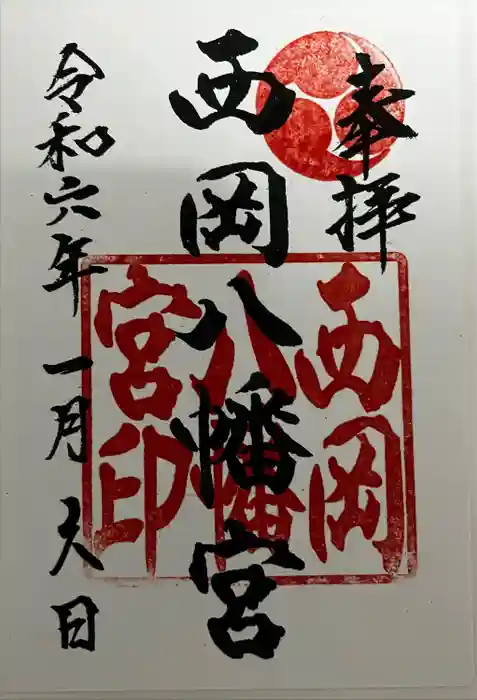 奉拝
西岡八幡宮
令和六年一月 日
西岡
八幡
宮印